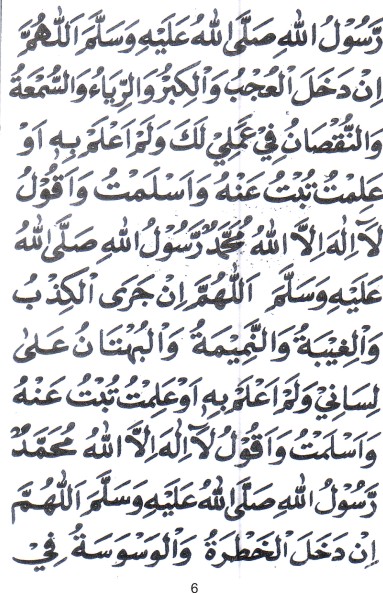 رَّسُوْلُ اللهِ صَلَّى اللهُ عَلَيْهِ وَسَلَّمَ اَللّٰهُمَّ
اِنْ دَخَلَ الْعُجْبُ وَالْكِبْرُ وَالرِّيَاءُ وَالسُّمْعَةُ
وَالنُّقْصَانُ فِيْ عَمَلِيْ لَكَ وَلَمْ اَعْلَمْ بِهٖ اَوْ
عَلِمْتُ تُبْتُ عَنْهُ وَاَسْلَمْتُ وَاَقُوْلُ
لَآ اِلٰهَ اِلَّا اللهُ مُحَمَّدٌ رَّسُوْلُ اللهِ صَلَّى اللهُ
عَلَيْهِ وَسَلَّمَ اَللّٰهُمَّ اِنْ جَرَى الْكِذْبُ
وَالْغِيْبَةُ وَالنَّمِيْمَةُ وَالْبُهْتَانُ عَلٰى
لِسَانِيْ وَلَمْ اَعْلَمْ بِهٖ اَوْ عَلِمْتُ تُبْتُ عَنْهُ
وَاَسْلَمْتُ وَاَقُوْلُ لَآ اِلٰهَ اِلَّا اللهُ مُحَمَّدٌ
رَّسُوْلُ اللهِ صَلَّى اللهُ عَلَيْهِ وَسَلَّمَ اَللّٰهُمَّ
اِنْ دَخَلَ الْخَطْرَةُ وَالْوَسْوَسَةُ فِيْ
6